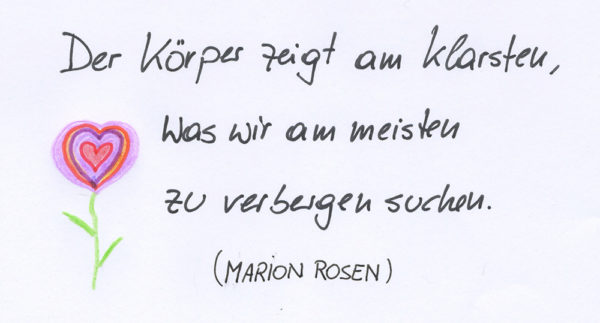 Der Körper zeigt am klarsten,
was wir am meisten
zu verbergen suchen.
(MARION ROSEN)